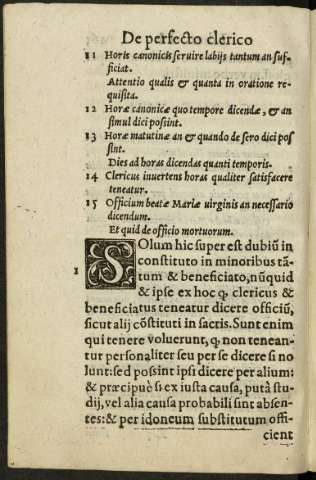 De perfecto clerico
11 Horis canonicis seruire labijs tantum an suf-
ficiat.
Attentio qualis & quanta in oratione re-
quisita.
12 Horæ canonicæ quo tempore dicendæ, & an
simul dici possint.
13 Horæ matutinæ an & quando de sero dici pos
sint.
Dies ad horas dicendas quanti temporis.
14 Clericus inuertens horas qualiter satisfacere
teneatur.
15 Officium beatæ Mariæ uirginis an necessario
dicendum.
Et quid de officio mortuorum.
1 SOlum hic super est dubiũ in
constituto in minoribus tã-
tum & beneficiato, nũquid
& ipse ex hoc ꝙ clericus &
beneficiatus teneatur dicere officiũ,
sicut alij cõstituti in sacris. Sunt enim
qui tenere voluerunt, ꝙ non tenean-
tur personaliter seu per se dicere si no
lunt: sed possint ipsi dicere per alium:
& præcipuè si ex iusta causa, putà stu-
dij, vel alia causa probabili sint absen-
tes: & per idoneum substitutum offi-
cient